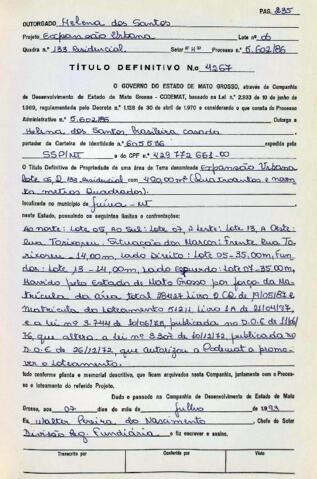 PAG. 235
OUTORGADO Helena dos Santos
Projeto Expansão Urbana Lote nº 06
Quadra n.º 133 Residencial. Setor "H" Processo n.º 5.602/86
TÍTULO DEFINITIVO N.º 4267
O GOVERNO DO ESTADO DE MATO GROSSO, através da Companhia
de Desenvolvimento do Estado de Mato Grosso - CODEMAT, baseado na Lei n.º 2.933 de 10 de junho de
1.969, regulamentada pelo Decreto n.º 1.128 de 30 de abril de 1.970 e considerando o que consta do Processo
Administrativo n.º 5.602/86 Outorga a
Helena dos Santos, brasileira casada
portador da Carteira de Identidade n.º 605.586 expedida pela
SSP/MT e do CPF n.º 429 772 661-00
O Título Definitivo de Propriedade de uma área de Terra denominada Expansão Urbana
Lote 06, Q. 133 Residencial com 490,00 m² (Quatrocentos e noven
ta metros Quadrados).
localizada no município de Juína-MT
neste Estado, possuindo os seguintes limites e confrontações:
Ao norte: Lote 05, Ao Sul: Lote 07, A Leste: Lote 13, A Oeste:
Rua Tarixoreu. Situação dos Marcos: Frente Rua Ta
rixoreu - 14,00m, Lado Direito: 05-35,00m, Fun
dos: Lote 13 - 14,00m, Lado Esquerdo: Lote 07-35,00m,
Havido pelo Estado de Mato Grosso por força da Ma
trícula da área total 28427 Livro 2 CQ de 19/05/87 e
Matrícula do Loteamento 51211 Livro 1A de 21/04/77,
e a lei nº 3.744 de 10/06/76, publicada no D.O.E de
76, que altera a lei nº 3307 de 10/12/72, publicada no
D.O.E de 26/12/72, que autorizou a Codemat a promo
ver o Loteamento.
tudo conforme planta e memorial descritivo, que ficam arquivados nesta Companhia, juntamente com o Proces-
so e loteamento do referido Projeto.
Dado e passado na Companhia de Desenvolvimento do Estado de Mato
Grosso, aos 07 dias do mês de julho de 1993
Eu, Walter Pereira do Nascimento Chefe do Setor
Divisão Reg. Fundiária o fiz escrever e assino.
Transcrito por Conferido por Visto